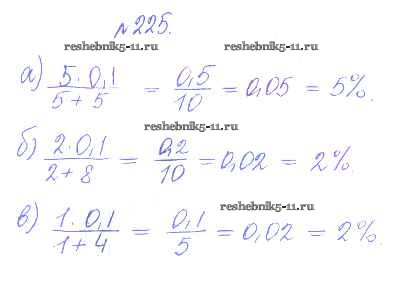 №225.
reshebnik5-11.ru reshebnik5-11.ru
а) 5·0,1 / 5+5 = 0,5 / 10 = 0,05 = 5%.
reshebnik5-11.ru
б) 2·0,1 / 2+8 = 0,2 / 10 = 0,02 = 2%.
reshebnik5-11.ru
в) 1·0,1 / 1+4 = 0,1 / 5 = 0,02 = 2%.